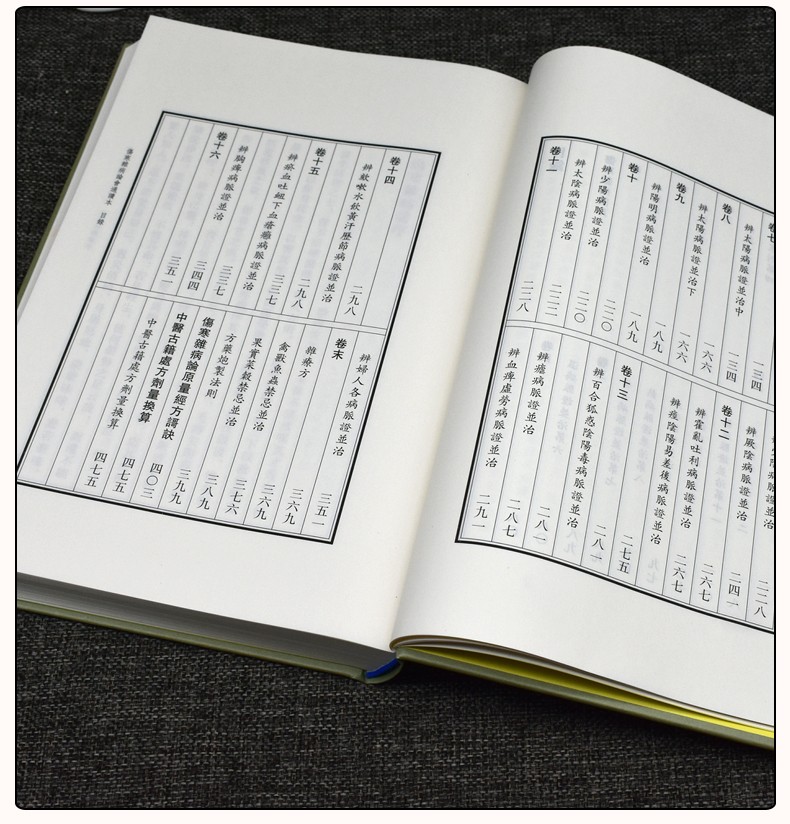 卷七
一三四
卷八
辨太陽病脈證並治中
一三四
卷九
辨太陽病脈證並治下
一六六
一六六
卷十
辨陽明病脈證並治
一八九
一八九
辨少陽病脈證並治
二二〇
卷十一
辨太陰病脈證並治
二二〇
二二二
二二八
二二八
辨厥陰病脈證並治
二四一
卷十二
辨霍亂吐利病脈證並治
二六七
辨痙陰陽易差後病脈證並治
二六七
卷十三
二七五
辨百合狐惑陰陽毒病脈證並治
二八一
辨瘧病脈證並治
二八一
二八七
辨血痺虛勞病脈證並治
二九一
卷十四
辨欬嗽水飲黃汗歷節病脈證並治
二九八
卷十五
二九八
辨瘀血吐衄下血瘡癰病脈證並治
三三七
卷十六
辨胸痺病脈證並治
三三七
三四四
三五一
辨婦人各病脈證並治
三五一
卷末
雜療方
三六九
禽獸魚蟲禁忌並治
三六九
果實菜穀禁忌並治
三七六
方藥炮製法則
三八九
傷寒雜病論原量經方歌訣
三九九
中醫古籍處方劑量換算
四〇三
中醫古籍處方劑量換算
四七五
四七五
傷寒雜病論會通讀本 目錄